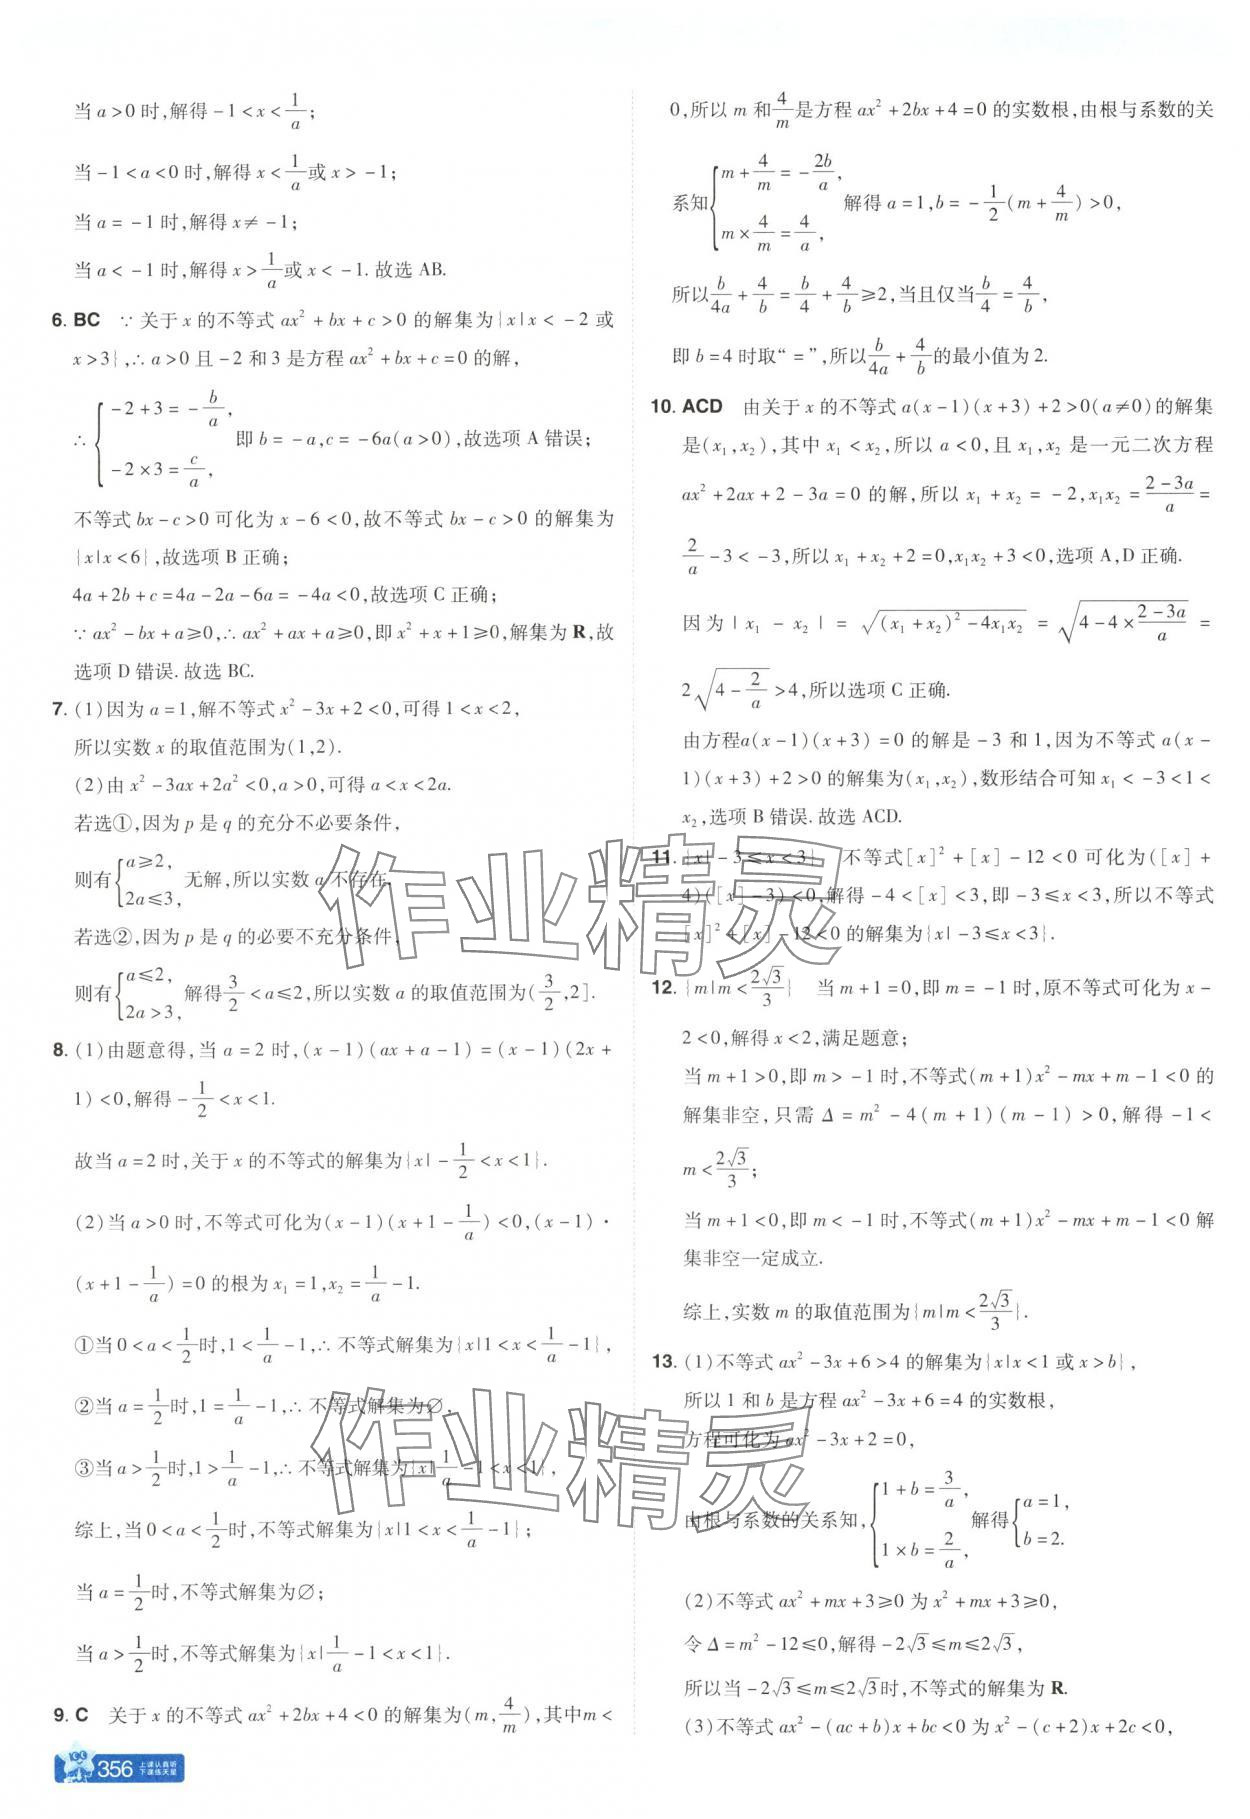 当 a>0 时,解得 -1<x<1/a;
当 -1<a<0 时,解得 x<1/a 或 x>-1;
当 a=-1 时,解得 x≠-1;
当 a<-1 时,解得 x>1/a 或 x<-1. 故选 AB.
6. BC ∵ 关于 x 的不等式 ax²+bx+c>0 的解集为{x|x<-2 或
x>3},∴ a>0 且 -2 和 3 是方程 ax²+bx+c=0 的解,
∴ { -2+3=-b/a, -2×3=c/a, 即 b=-a,c=-6a(a>0),故选项 A 错误;
不等式 bx-c>0 可化为 x-6<0,故不等式 bx-c>0 的解集为
{x|x<6},故选项 B 正确;
4a+2b+c=4a-2a-6a=-4a<0,故选项 C 正确;
∵ ax²-bx+a≥0,∴ ax²+ax+a≥0,即 x²+x+1≥0,解集为 R,故
选项 D 错误. 故选 BC.
7. (1)因为 a=1,解不等式 x²-3x+2<0,可得 1<x<2,
所以实数 x 的取值范围为(1,2).
(2)由 x²-3ax+2a²<0,a>0,可得 a<x<2a.
若选①,因为 p 是 q 的充分不必要条件,
则有 { a≥2, 2a≤3, 无解,所以实数 a 不存在.
若选②,因为 p 是 q 的必要不充分条件,
则有 { a≤2, 2a>3, 解得 3/2<a≤2,所以实数 a 的取值范围为(3/2,2].
8. (1)由题意得,当 a=2 时,(x-1)(ax+a-1)=(x-1)(2x+
1)<0,解得 -1/2<x<1.
故当 a=2 时,关于 x 的不等式的解集为{x|-1/2<x<1}.
(2)当 a>0 时,不等式可化为(x-1)(x+1-1/a)<0,(x-1)·
(x+1-1/a)=0 的根为 x₁=1,x₂=1/a-1.
①当 0<a<1/2 时,1<1/a-1,∴ 不等式解集为{x|1<x<1/a-1},
②当 a=1/2 时,1=1/a-1,∴ 不等式解集为∅,
③当 a>1/2 时,1>1/a-1,∴ 不等式解集为{x|1/a-1<x<1},
综上,当 0<a<1/2 时,不等式解集为{x|1<x<1/a-1};
当 a=1/2 时,不等式解集为∅;
当 a>1/2 时,不等式解集为{x|1/a-1<x<1}.
9. C 关于 x 的不等式 ax²+2bx+4<0 的解集为(m,4/m),其中 m<
356 上课认真听
下课练天星
0,所以 m 和 4/m 是方程 ax²+2bx+4=0 的实数根,由根与系数的关
系知 { m+4/m=-2b/a, m×4/m=4/a, 解得 a=1,b=-1/2(m+4/m)>0,
所以 b/4a+4/b=b/4+4/b≥2,当且仅当 b/4=4/b,
即 b=4 时取“=”,所以 b/4a+4/b 的最小值为 2.
10. ACD 由关于 x 的不等式 a(x-1)(x+3)+2>0(a≠0)的解集
是(x₁,x₂),其中 x₁<x₂,所以 a<0,且 x₁,x₂ 是一元二次方程
ax²+2ax+2-3a=0 的解,所以 x₁+x₂=-2,x₁x₂=(2-3a)/a=
2/a-3<-3,所以 x₁+x₂+2=0,x₁x₂+3<0,选项 A,D 正确.
因为 |x₁-x₂|=√((x₁+x₂)²-4x₁x₂)=√(4-4×(2-3a)/a)=
2√(4-2/a)>4,所以选项 C 正确.
由方程a(x-1)(x+3)=0 的解是 -3 和 1,因为不等式 a(x-
1)(x+3)+2>0 的解集为(x₁,x₂),数形结合可知 x₁<-3<1<
x₂,选项 B 错误. 故选 ACD.
11. {x|-3≤x<3} 不等式[x]²+[x]-12<0 可化为([x]+
4)([x]-3)<0,解得 -4<[x]<3,即 -3≤x<3,所以不等式
[x]²+[x]-12<0 的解集为{x|-3≤x<3}.
12. {m|m<2√3/3} 当 m+1=0,即 m=-1 时,原不等式可化为 x-
2<0,解得 x<2,满足题意;
当 m+1>0,即 m>-1 时,不等式(m+1)x²-mx+m-1<0 的
解集非空,只需 Δ=m²-4(m+1)(m-1)>0,解得 -1<
m<2√3/3;
当 m+1<0,即 m<-1 时,不等式(m+1)x²-mx+m-1<0 解
集非空一定成立.
综上,实数 m 的取值范围为{m|m<2√3/3}.
13. (1)不等式 ax²-3x+6>4 的解集为{x|x<1 或 x>b},
所以 1 和 b 是方程 ax²-3x+6=4 的实数根,
方程可化为 ax²-3x+2=0,
由根与系数的关系知, { 1+b=3/a, 1×b=2/a, 解得 { a=1, b=2.
(2)不等式 ax²+mx+3≥0 为 x²+mx+3≥0,
令 Δ=m²-12≤0,解得 -2√3≤m≤2√3,
所以当 -2√3≤m≤2√3 时,不等式的解集为 R.
(3)不等式 ax²-(ac+b)x+bc<0 为 x²-(c+2)x+2c<0,
作业精灵
作业精灵